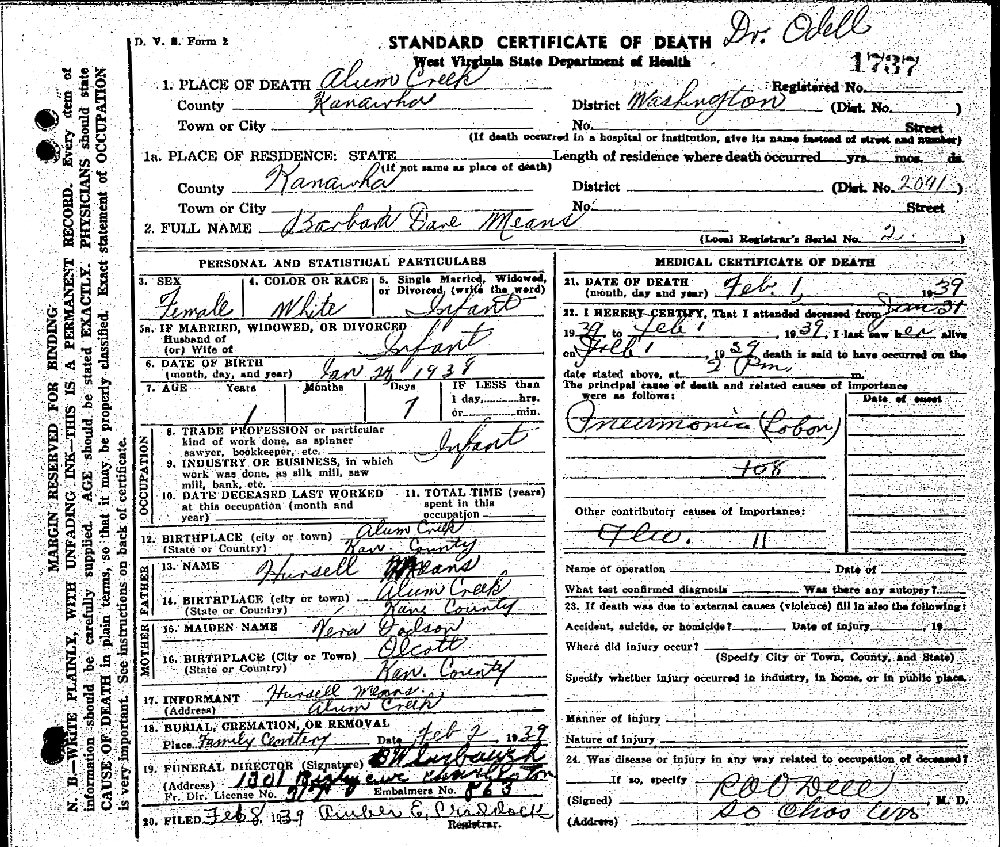 D. V. S. Form 2
STANDARD CERTIFICATE OF DEATH Dr. Odell
West Virginia State Department of Health
1737
1. PLACE OF DEATH Alum Creek Registered No.
County Kanawha District Washington (Dist. No. )
Town or City No. Street
(If death occurred in a hospital or institution, give its name instead of street and number)
1a. PLACE OF RESIDENCE: STATE Length of residence where death occurred yrs. mos. ds.
(If not same as place of death)
County Kanawha District (Dist. No. 2091 )
Town or City No. Street
2. FULL NAME Means
(Local Registrar's Serial No. 2. )
PERSONAL AND STATISTICAL PARTICULARS
3. SEX 4. COLOR OR RACE 5. Single Married, Widowed, or Divorced, (write the word)
Female White Infant
5a. IF MARRIED, WIDOWED, OR DIVORCED
Husband of
(or) Wife of Infant
6. DATE OF BIRTH
(month, day, and year) Jan 1938
7. AGE Years Months Days IF LESS than
1 day, hrs.
or min.
1 7
OCCUPATION
8. TRADE PROFESSION or particular
kind of work done, as spinner
sawyer, bookkeeper, etc. Infant
9. INDUSTRY OR BUSINESS, in which
work was done, as silk mill, saw
mill, bank, etc.
10. DATE DECEASED LAST WORKED
at this occupation (month and
year)
11. TOTAL TIME (years)
spent in this
occupation
12. BIRTHPLACE (city or town) Alum Creek
(State or Country) Kan. County
FATHER
13. NAME Hursell Means
14. BIRTHPLACE (city or town) Alum Creek
(State or Country) Kan. County
MOTHER
15. MAIDEN NAME Vera Dodson
16. BIRTHPLACE (City or Town) Olcott
(State or Country) Kan. County
17. INFORMANT Hursell Means.
(Address) Alum Creek
18. BURIAL, CREMATION, OR REMOVAL
Place Family Cemetery Date Feb 2 1939
19. FUNERAL DIRECTOR (Signature)
(Address) 1301
Fr. Dir. License No. Embalmers No. 863
20. FILED Feb 8, 1939 Amber E. Craddock
Registrar.
MEDICAL CERTIFICATE OF DEATH
21. DATE OF DEATH
(month, day and year) Feb. 1, 1939
22. I HEREBY CERTIFY, That I attended deceased from Jan 31
1939 to Feb 1, 1939, I last saw her alive
on Feb 1, 1939, death is said to have occurred on the
date stated above, at 2 Pm m.
The principal cause of death and related causes of importance
were as follows:
Date of onset
Pneumonia (Lobar)
108
Other contributory causes of importance:
Flu. 11
Name of operation Date of
What test confirmed diagnosis Was there any autopsy?
23. If death was due to external causes (violence) fill in also the following:
Accident, suicide, or homicide? Date of injury 19
Where did injury occur?
(Specify City or Town, County, and State)
Specify whether injury occurred in industry, in home, or in public place.
Manner of injury
Nature of injury
24. Was disease or injury in any way related to occupation of deceased?
If so, specify
(Signed) R O Odell, M. D.
(Address) So Chas WVa
MARGIN RESERVED FOR BINDING
N. B.—WRITE PLAINLY, WITH UNFADING INK—THIS IS A PERMANENT RECORD. Every item of
information should be carefully supplied. AGE should be stated EXACTLY. PHYSICIANS should state
CAUSE OF DEATH in plain terms, so that it may be properly classified. Exact statement of OCCUPATION
is very important. See instructions on back of certificate.